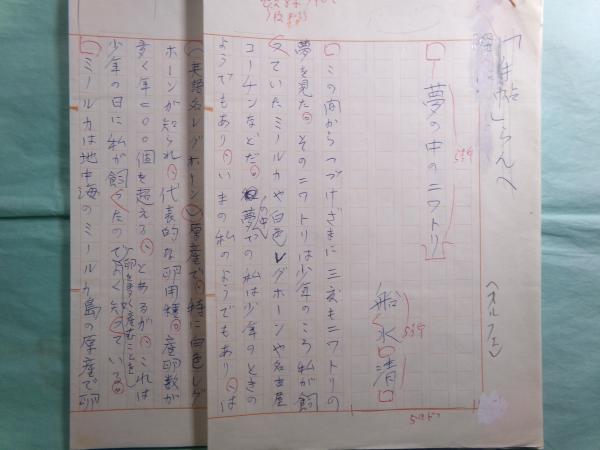 「手帖」らんへ
(オルフェ)
夢の中のニワトリ
5行
船水清
5行
5ミドン
この間からつづけざまに三度もニワトリの
夢を見た。そのニワトリは少年のころ私が飼
っていたミールカや白色レグホーンや名古屋
コーチンなどだ。夢の中の私は少年のときの
ようでもあり、いまの私のようでもあり、は
(英語名レグホーン)原産で、特に白色レグ
ホーンが知られ、代表的な卵用種。産卵数が
多く年二〇〇個を超える、とあるが、これは
少年の日に私が飼ったのでよく知っている。
卵を多く産むことを
ミールカは地中海のミールカ島の原産で卵